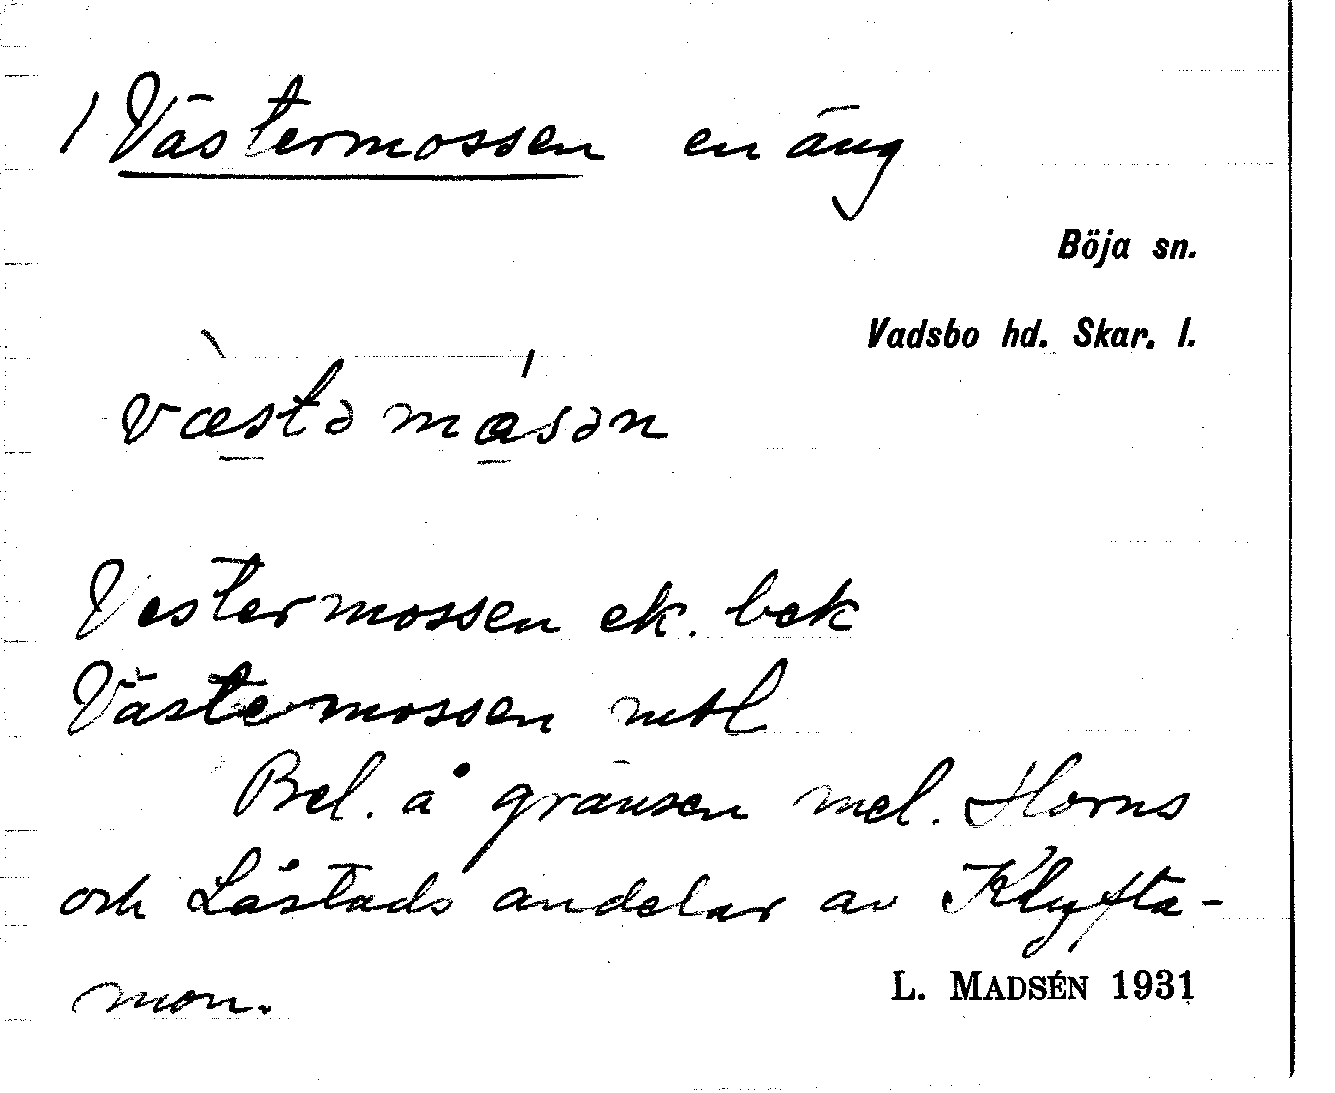 1 Västermossen en äng
Böja sn.
Vadsbo hd. Skar. l.
væstə måsən
Vestermossen ek. bek
Västermossen mtbl
Bel. å gränsen mel. Horns
och Låstads andelar av Klyfta-
mon.
L. MADSÉN 1931